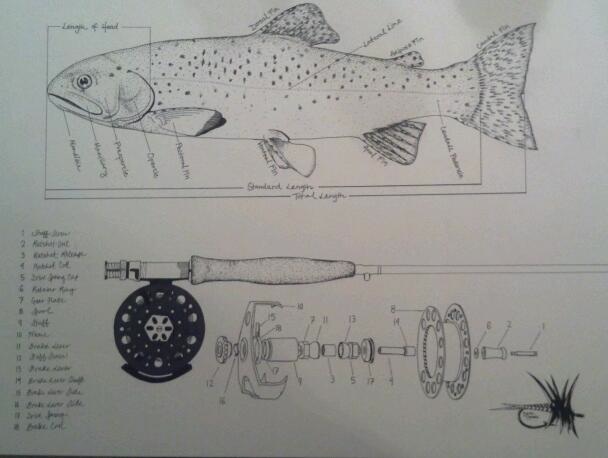 Length of Head
Dorsal Fin
Lateral Line
Adipose Fin
Caudal Fin
Mandible
Maxillary
Preopercle
Opercle
Pectoral Fin
Pelvic Fin
Anal Fin
Caudal Peduncle
Standard Length
Total Length
1
2
3 Ratchet Release
4 Ratchet
5 Drive Spring Cap
6 Retainer Ring
7 Gear Plate
8 Spool
9 Shaft
10 Frame
11 Brake Lever
12
13 Brake Lever
14 Brake Lever Shaft
15 Brake Lever
16 Brake Lever
17 Drive Spring
18 Brake
10
15
18
7
11
13
14
8
6
2
1
12
16
17
9
3
5
17
4